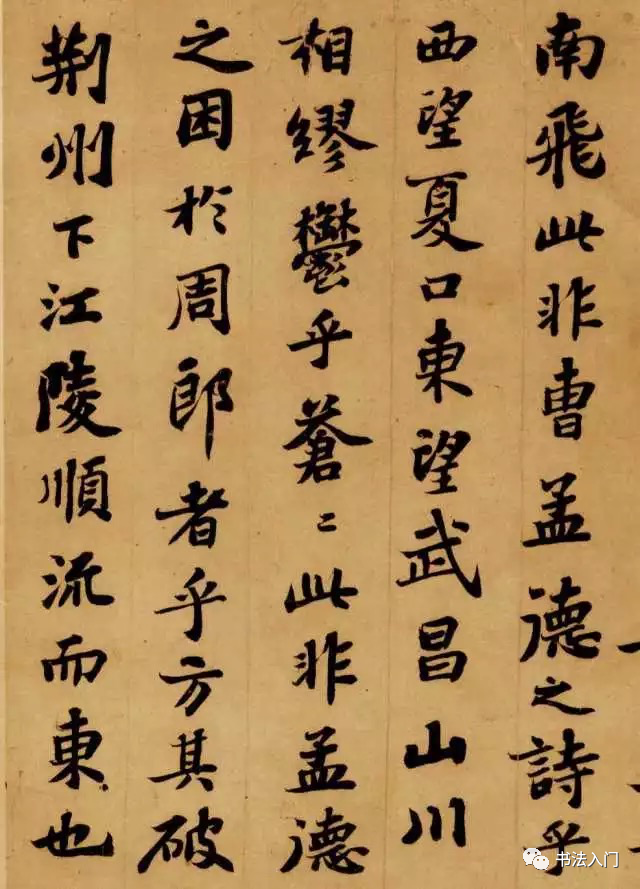 南飛此非曹孟德之詩乎
西望夏口東望武昌山川
相繆鬱乎蒼〻此非孟德
之困於周郎者乎方其破
荆州下江陵順流而東也
书法入门